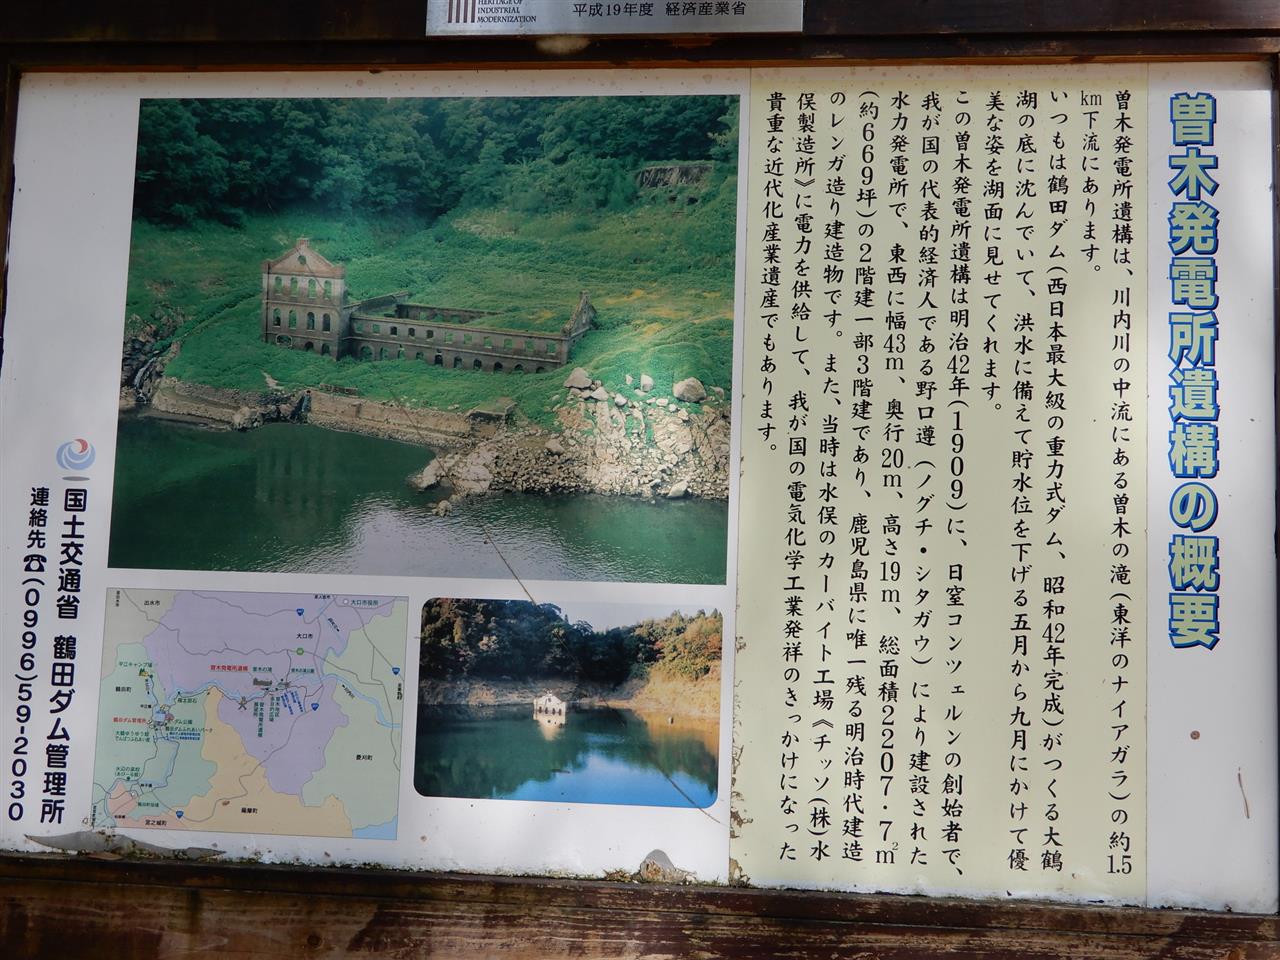 HERITAGE OF
INDUSTRIAL
MODERNIZATION
平成19年度 経済産業省
曽木発電所遺構の概要
曽木発電所遺構は、川内川の中流にある曽木の滝(東洋のナイアガラ)の約1.5
km下流にあります。
いつもは鶴田ダム(西日本最大級の重力式ダム、昭和42年完成)がつくる大鶴
湖の底に沈んでいて、洪水に備えて貯水位を下げる五月から九月にかけて優
美な姿を湖面に見せてくれます。
この曽木発電所遺構は明治42年(1909)に、日窒コンツェルンの創始者で、
我が国の代表的経済人である野口遵(ノグチ・シタガウ)により建設された
水力発電所で、東西に幅43m、奥行20m、高さ19m、総面積2207・7㎡
(約669坪)の2階建一部3階建であり、鹿児島県に唯一残る明治時代建造
のレンガ造り建造物です。また、当時は水俣のカーバイト工場《チッソ(株)水
俣製造所》に電力を供給して、我が国の電気化学工業発祥のきっかけになった
貴重な近代化産業遺産でもあります。
国土交通省 鶴田ダム管理所
連絡先☎(0996)59-2030
出水市
大口市役所
大口市
曽木発電所遺構
曽木の滝
鶴田町
鶴田ダム管理所
ダム公園
菱刈町
薩摩町
宮之城町